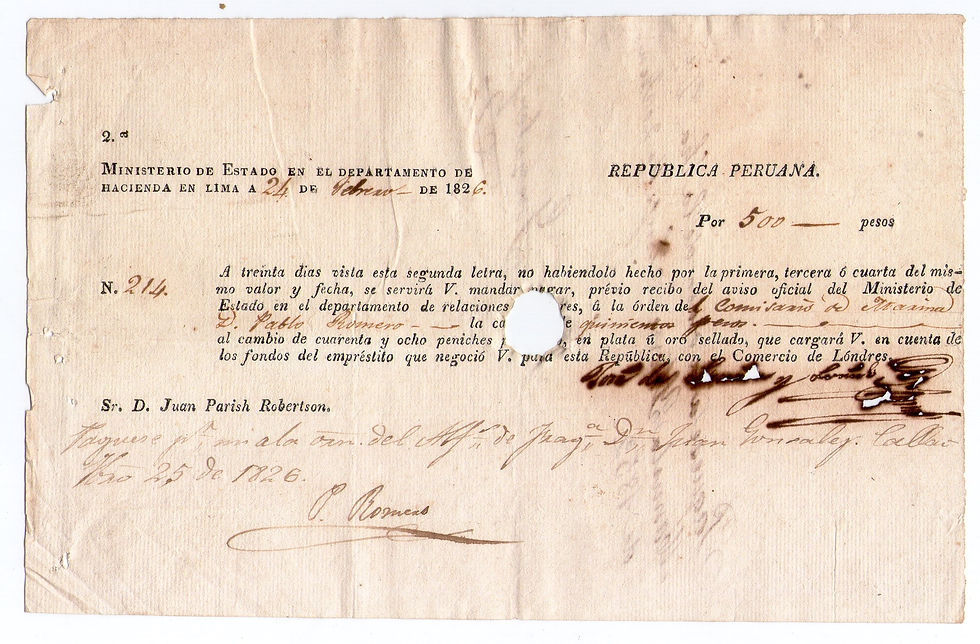 2.ª
MINISTERIO DE ESTADO EN EL DEPARTAMENTO DE
HACIENDA EN LIMA A 24 DE Febrero DE 1826.
REPUBLICA PERUANA.
Por 500 — pesos
N. 214.
A treinta dias vista esta segunda letra, no habiendolo hecho por la primera, tercera ó cuarta del mis-
mo valor y fecha, se servirá V. mandar pagar, prévio recibo del aviso oficial del Ministerio de
Estado en el departamento de relaciones res, á la órden del Comisario de Marina
D. Pablo Romero — la ca e quinientos pesos.
al cambio de cuarenta y ocho peniches p en plata ú oro sellado, que cargará V. en cuenta de
los fondos del empréstito que negoció V. para esta República, con el Comercio de Lóndres.
José de y
Sr. D. Juan Parish Robertson.
Paguese pr. mi a la orn. del de Fragª Dn Juan Gonzalez. Callao
25 de 1826.
P. Romero